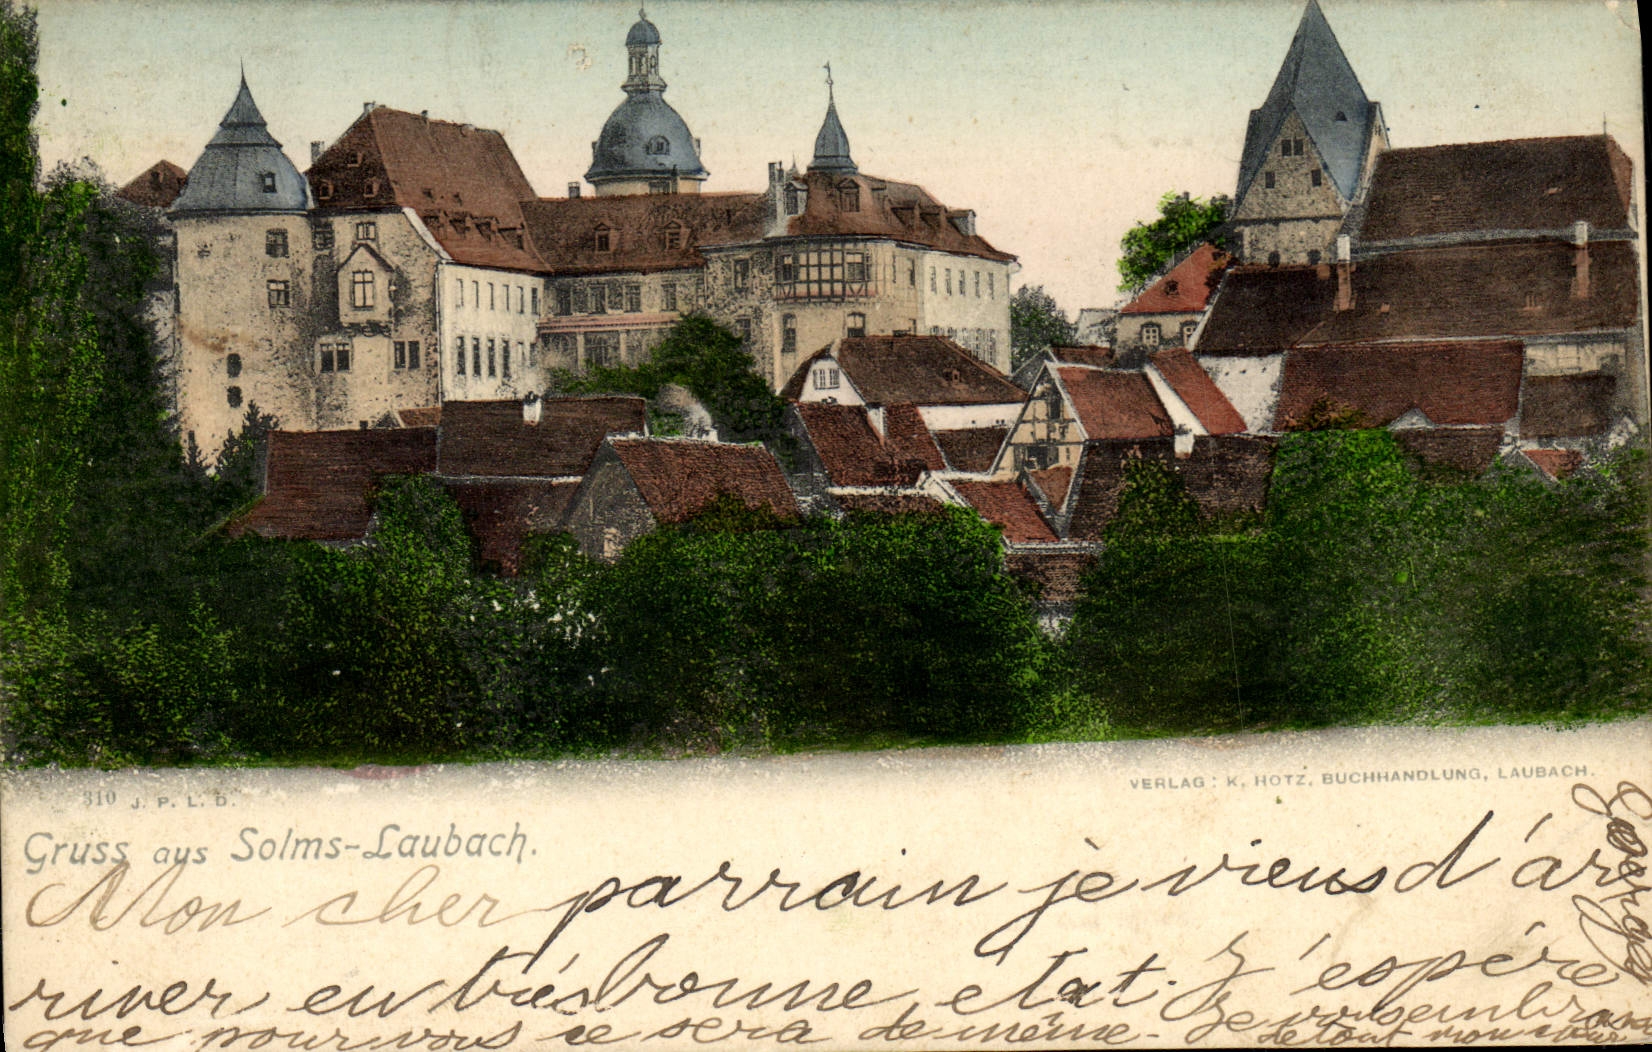 310 J. P. L. D.
VERLAG: K. HOTZ, BUCHHANDLUNG, LAUBACH.
Gruss aus Solms-Laubach.
Mon cher parrain je viens d'ar
river en très bonne état. J'espère
que pour vous ce sera de même. Je vous embrasse
de tout mon cœur
Georges